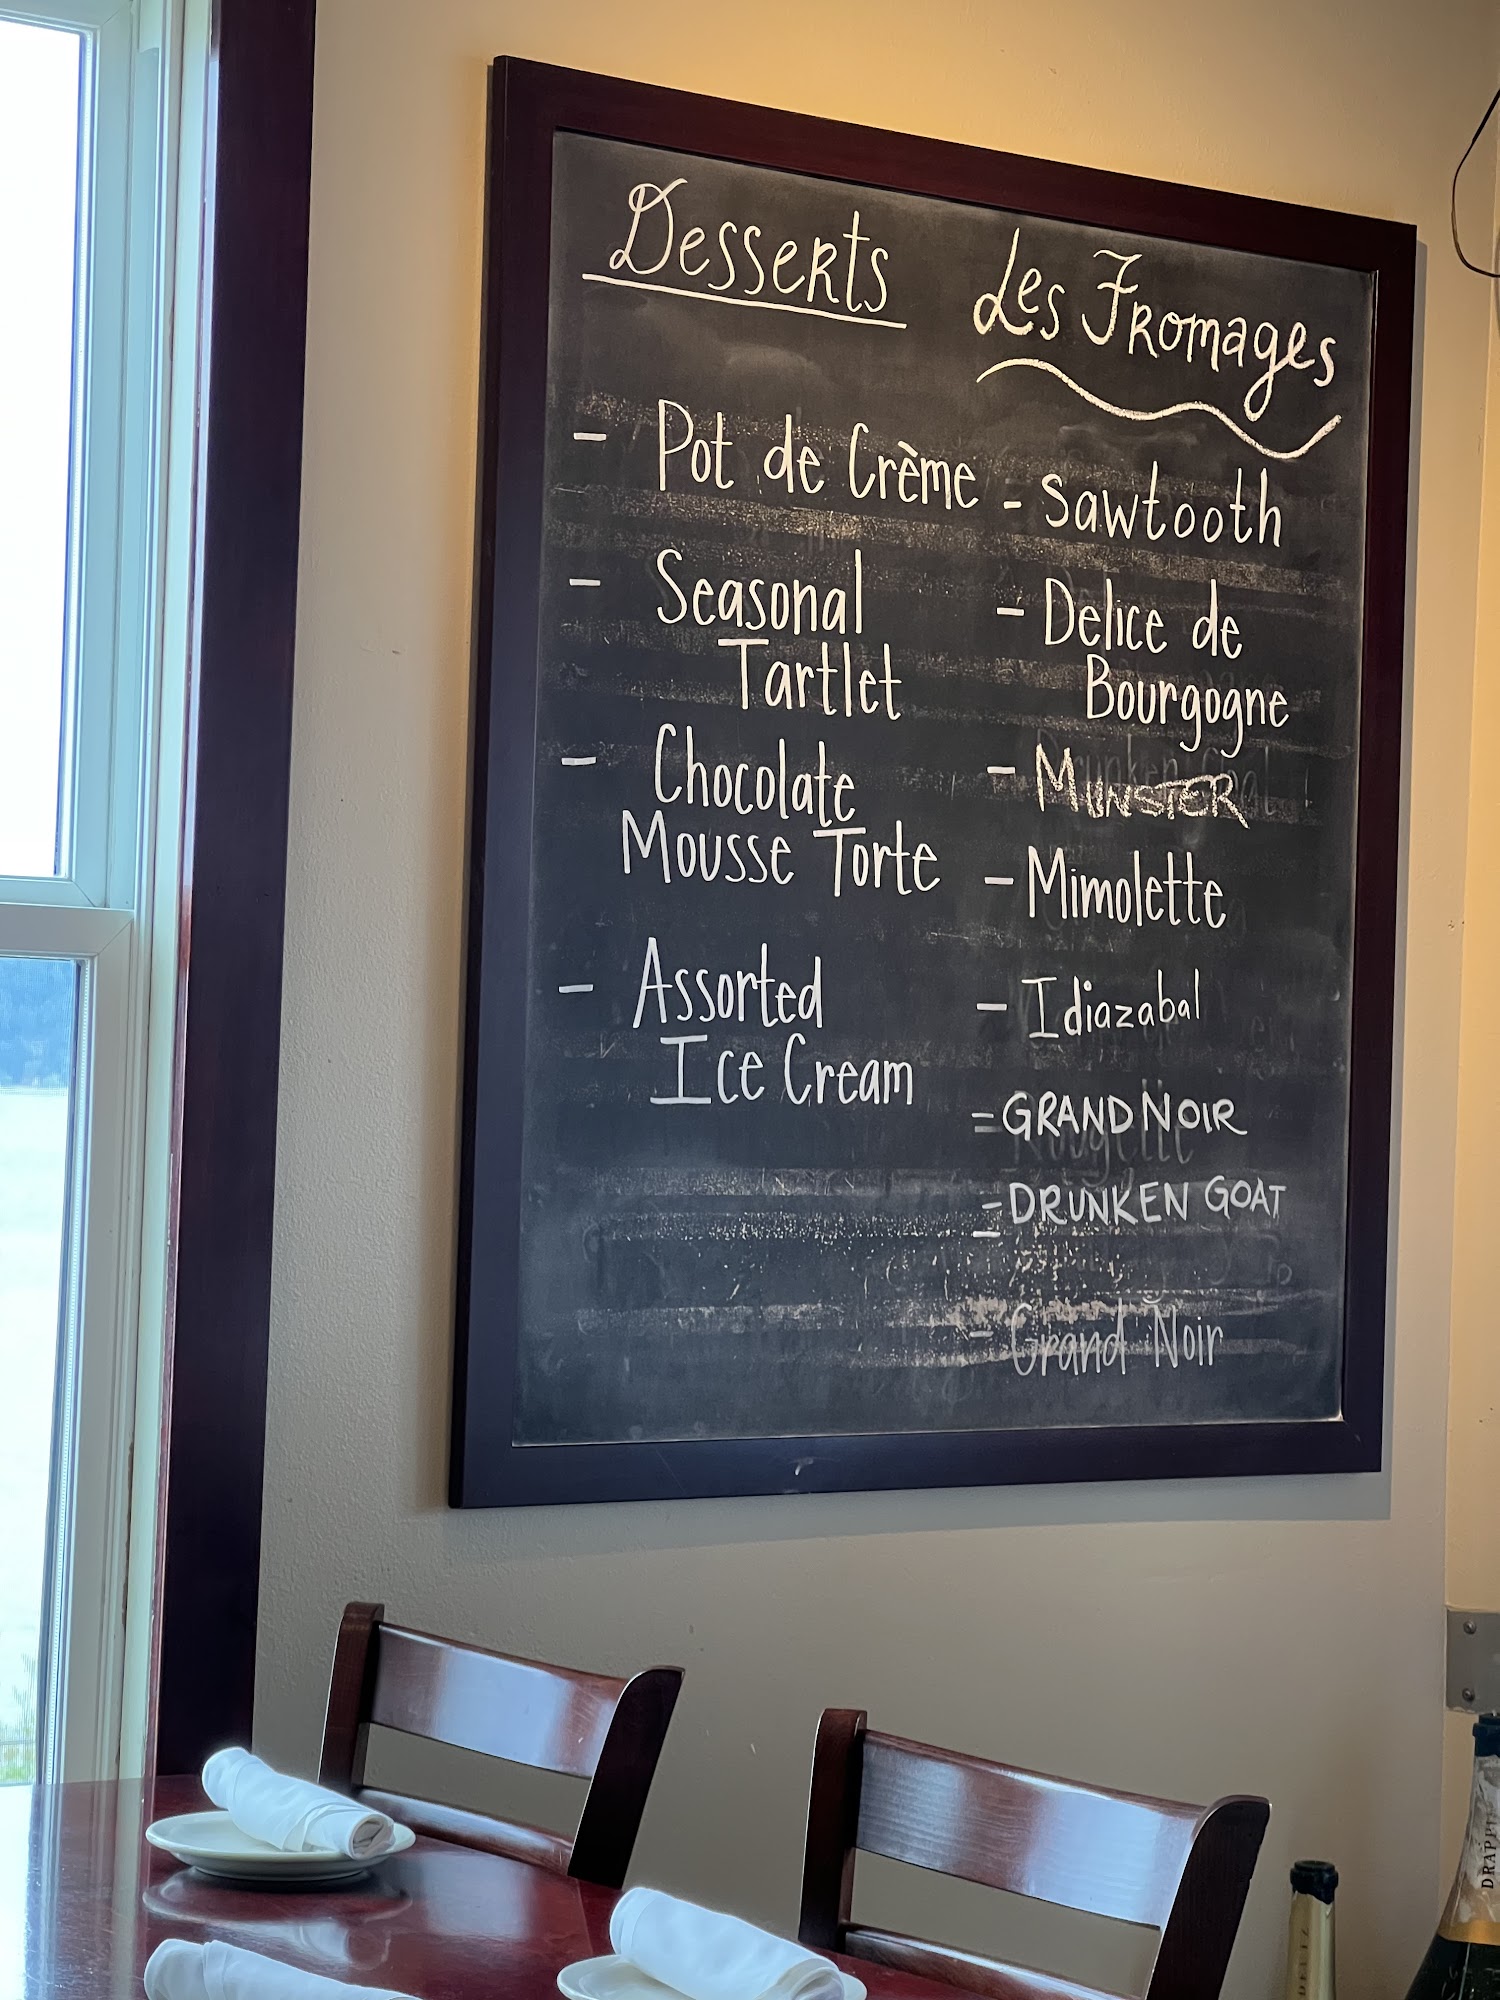 Desserts
- Pot de Crème
- Seasonal
Tartlet
- Chocolate
Mousse Torte
- Assorted
Ice Cream
Les Fromages
- Sawtooth
- Delice de
Bourgogne
- MUNSTER
- Mimolette
- Idiazabal
= GRAND NOIR
- DRUNKEN GOAT
- Grand Noir